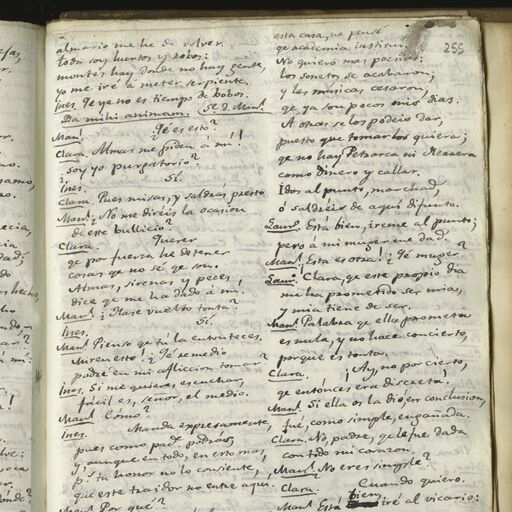 almario me he de volver.
toda soy hurtos y robos:
montes hay donde no hay gente,
yo me iré a meter serpiente.
Ines. Qe ya no es tiempo de bobos.
Da mihi animam. (Se d. Manl.
Manl. Qé es esto?
Clara. Almas me piden á mí!
soy yo purgatorio?
Ines. Sí.
Clara. Pues misas, y saldras presto.
Manl. No me direis la ocasion
de este bullicio?
Clara. Querer
qe por fuerza he de tener
cosas qe no sé qe son.
Almas, sirenas y peces,
dice qe me ha dado á mí.
Manl. ¿Hase vuelto tonta?
Ines. Sí.
Manl. Pienso qe tú la entonteces.
Miren esto! ¿Qé remedio
podré en mi afliccion tomar?
Ines. Si me quieres escuchar,
facil es, señor, el medio.
Manl. Cómo?
Ines. Manda expresamente,
pues como padre podrás,
y aunque en todo, en esto mas,
pr. tu honor no lo consiente,
que este traidor no entre aquí.
Manl. Por qué?
255
esta casa, no pense
qe academia instituí.
No quiero mas poesías:
los sonetos se acabaron,
y las músicas cesaron,
qe ya son pocos mis dias.
A otras se los podeis dar,
puesto que tomarlos quiera;
qe no hay Petrarca ni Herrera
como dinero y callar.
Idos al punto, marchad,
ó saldreis de aquí difunto.
Laur. Está bien, iréme al punto;
pero á mi muger me dad.
Manl. Esta es otra! ¿Qé muger?
Laur. Clara, qe este propio dia
me ha prometido ser mia,
y mia tiene de ser.
Manl. Palabra qe ella prometa
es nula, y no hace concierto,
porque es tonta.
Clara. ¡Ay, no por cierto,
qe entónces era discreta!
Manl. Si ella os la dio, en conclusion,
fué, como simple, engañada.
Clara. No, padre, qe le fué dada
con todo mi corazon.
Manl. No eres simple?
Clara. Cuando quiero.
Manl. Está bien, iré al vicario: